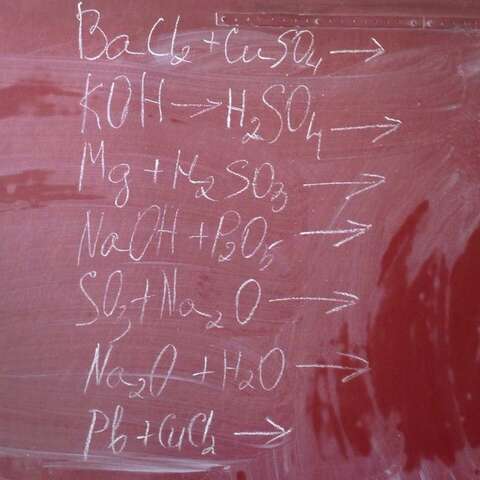 BaCl₂ + CuSO₄ →
KOH → H₂SO₄ →
Mg + H₂SO₃ →
NaOH + P₂O₅ →
SO₃ + Na₂O →
Na₂O + H₂O →
Pb + CuCl₂ →